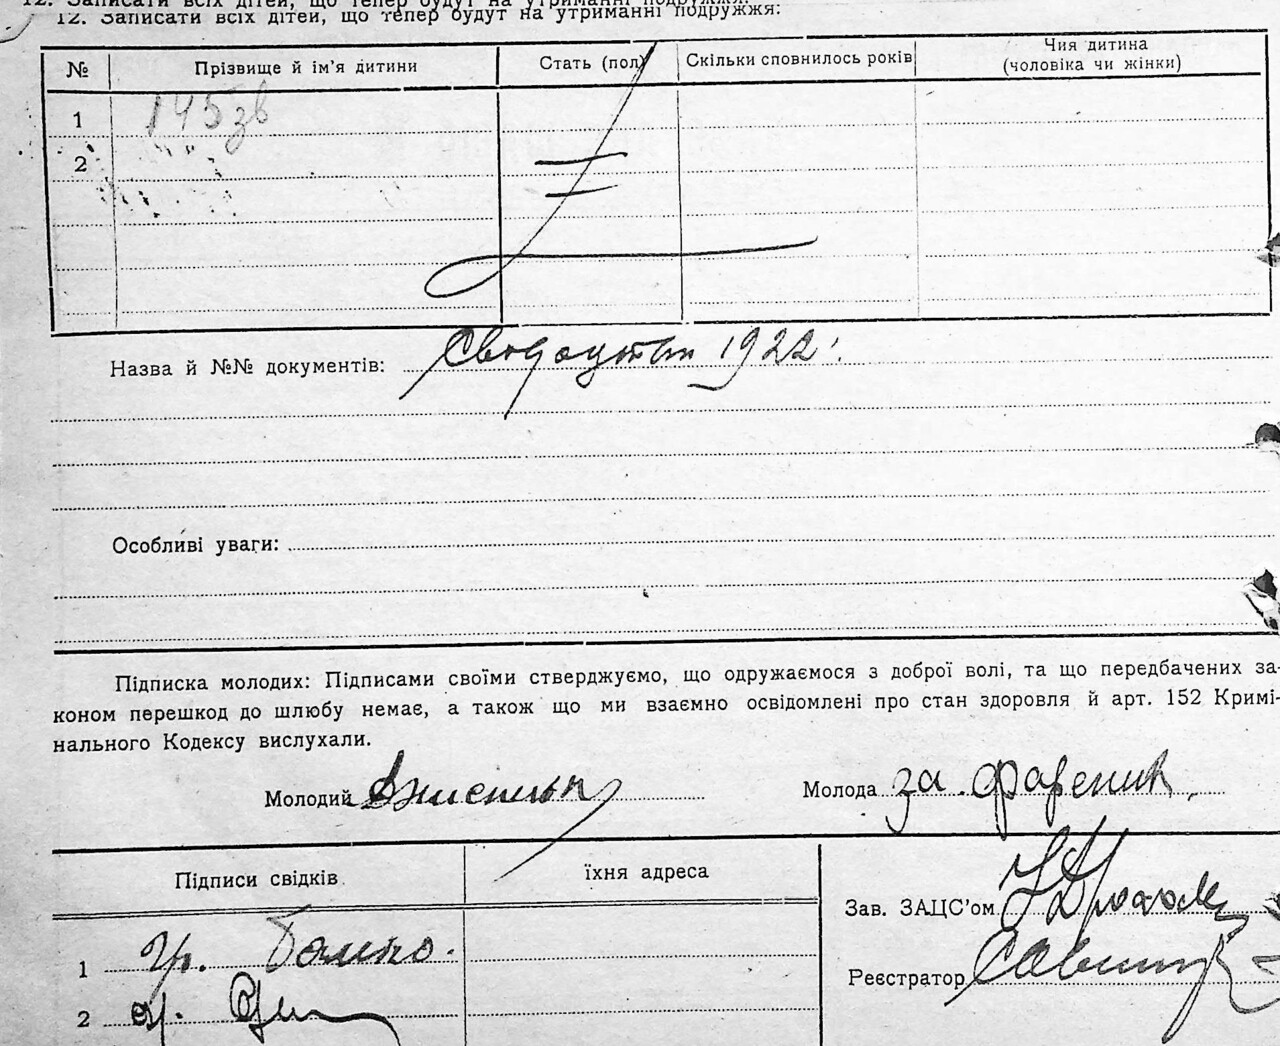 12. Записати всіх дітей, що тепер будут на утриманні подружжя:
12. Записати всіх дітей, що тепер будут на утриманні подружжя:
№ Прізвище й ім'я дитини Стать (пол) Скільки сповнилось років Чия дитина (чоловіка чи жінки)
1 145зв
2
Назва й №№ документів: 1922
Особливі уваги:
Підписка молодих: Підписами своїми стверджуємо, що одружаємося з доброї волі, та що передбачених за-
коном перешкод до шлюбу немає, а також що ми взаємно освідомлені про стан здоровля й арт. 152 Кримі-
нального Кодексу вислухали.
Молодий Молода за
Підписи свідків їхня адреса
Зав. ЗАЦС'ом
1 гр.
Реєстратор
2 гр.